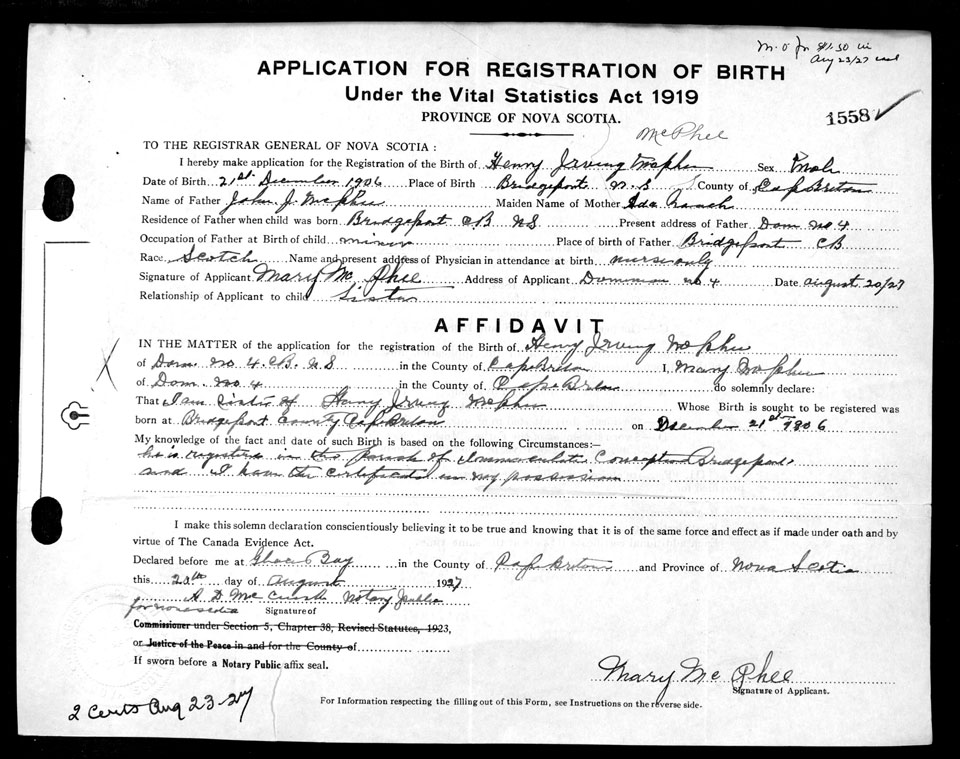 M.O. for $1.50 in
Aug 23/27
APPLICATION FOR REGISTRATION OF BIRTH
Under the Vital Statistics Act 1919
PROVINCE OF NOVA SCOTIA.
1558 ✓
McPhee
TO THE REGISTRAR GENERAL OF NOVA SCOTIA :
I hereby make application for the Registration of the Birth of Henry Irving McPhee Sex Male
Date of Birth 21st December 1906 Place of Birth Bridgeport N.S County of Cape Breton
Name of Father John J. McPhee Maiden Name of Mother Ada
Residence of Father when child was born Bridgeport CB NS Present address of Father Dom No 4
Occupation of Father at Birth of child miner Place of birth of Father Bridgeport CB
Race Scotch Name and present address of Physician in attendance at birth nurse only
Signature of Applicant Mary Mc Phee Address of Applicant Dominion No 4 Date August 20/27
Relationship of Applicant to child Sister
AFFIDAVIT
IN THE MATTER of the application for the registration of the Birth of Henry Irving McPhee
of Dom. No 4. CB. NS in the County of Cape Breton I, Mary McPhee
of Dom. No 4 in the County of Cape Breton do solemnly declare:
That I am Sister of Henry Irving McPhee Whose Birth is sought to be registered was
born at Bridgeport County Cape Breton on December 21st 1906
My knowledge of the fact and date of such Birth is based on the following Circumstances:—
he is registered in the Parish of Immaculate Conception Bridgeport
and I have the certificate in my possession
I make this solemn declaration conscientiously believing it to be true and knowing that it is of the same force and effect as if made under oath and by
virtue of The Canada Evidence Act.
Declared before me at Glace Bay in the County of Cape Breton and Province of Nova Scotia
this 20th day of August 1927
A D Mc Notary Public
for Nova Scotia Signature of
Commissioner under Section 5, Chapter 38, Revised Statutes, 1923,
or Justice of the Peace in and for the County of
If sworn before a Notary Public affix seal.
Mary Mc Phee
Signature of Applicant.
2 Certs Aug 23-27
For Information respecting the filling out of this Form, see Instructions on the reverse side.